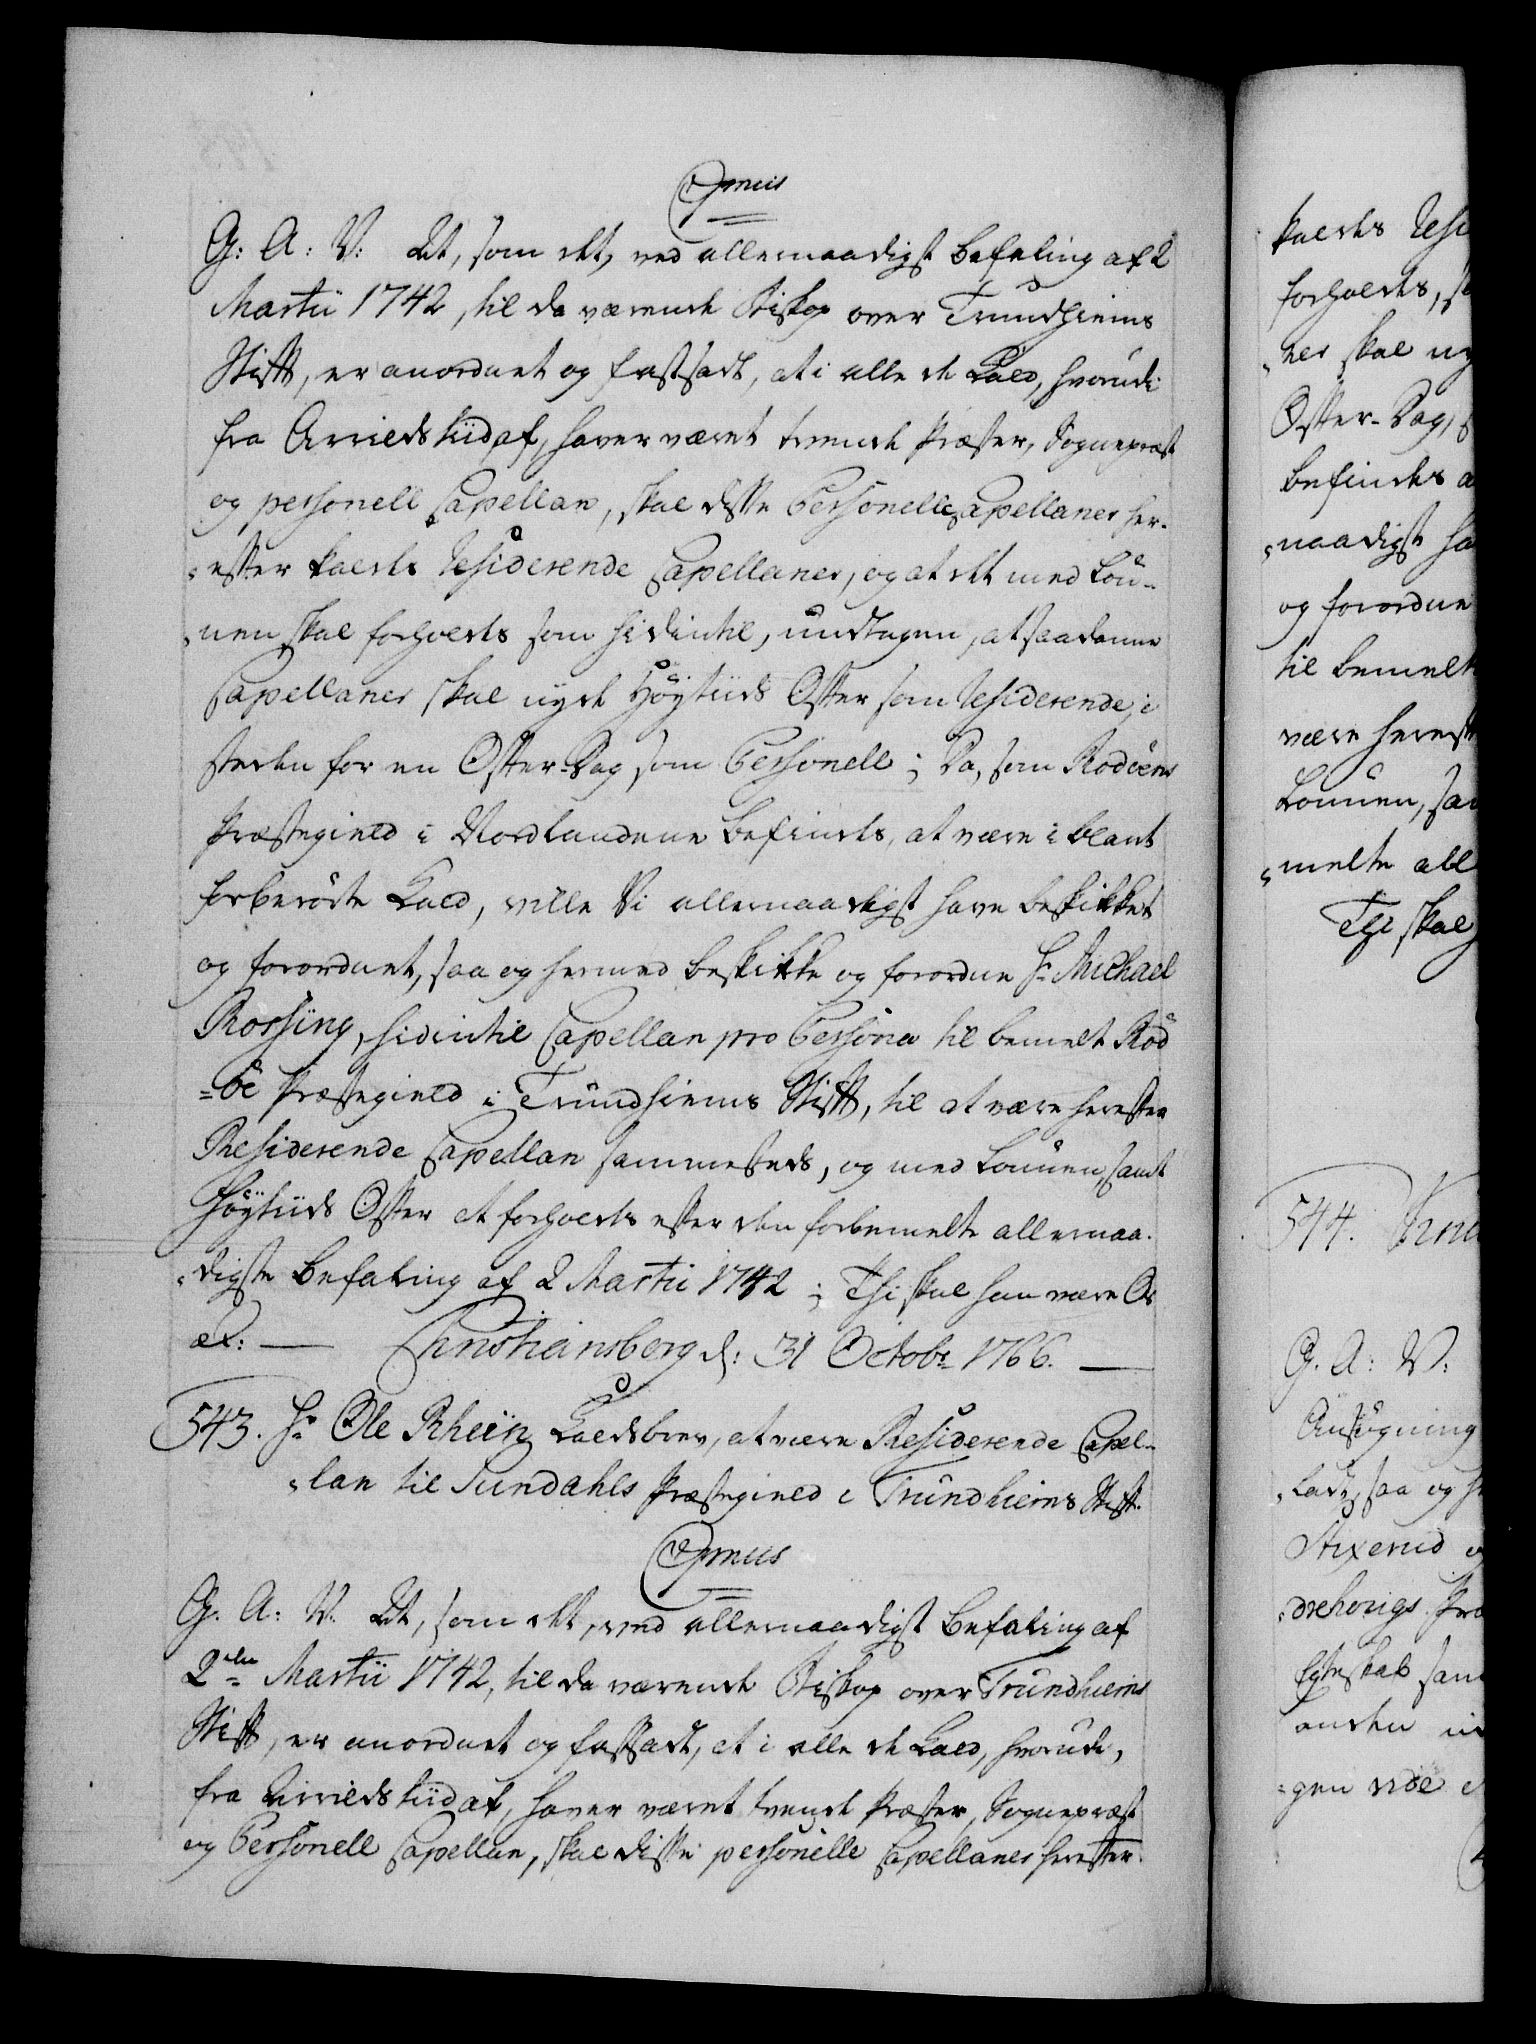 G: A: V: At, som det, ved allernaadigst Befaling af 2
Martii 1742, til da værende Biskop over Trundhiems
Stift, er anordnet og fastsadt, at i alle de Kald, hvorudi
fra Arrieds tiid af, haver været tvende Præster, Sognepræst
og personell Capellan, skal disse Personelle Capellaner her-
„efter kaldes Residerende Capellaner, og at det med Løn-
„nen skal forholdes som hidindtil, undtagen, at saadanne
Capellaner skal nyde Høytiids Offer som Residerende, i
steden for en Offer-Dag som Personell; Da, som Rodøens
Præstegield i Nordlandene befindes, at være i blant
forberørte Kald, ville Vi allernaadigst have beskikket
og forordnet, saa og hermed beskikke og forordne Hr Michael
Rossing, hidindtil Capellan pro Persona til bemelt Rod
=öe Præstegield i Trundhiems Stift, til at være herefter
Residerende Capellan sammesteds, og med Lønnen, samt
Høytiids Offer at forholdes efter den forbemelte allernaa-
„digste Befaling af 2 Martii 1742; Thi skal han være Os
etc: — Christiansborg d: 31 Octobr 1766. —
543. Hr Ole Rheiin Kaldsbrev, at være Residerende Capel-
„lan til Sundahls Præstegield i Trundhiems Stift.
G. A: V. At, som det, ved allernaadigst Befaling af
2den Martii 1742, til da værende Biskop over Trundhiems
Stift, er anordnet og fastsadt, at i alle de Kald, hvorudi,
fra Arrieds tiid af, haver været tvende Præster, Sognepræst
og Personell Capellan, skal disse personelle Capellaner herefter
kaldes Resi
forholdes, s
ner skal ny
Offer-Dag, s
befindes a
„naadigst ha
og forordne
til bemelt
være hereft
Lønnen, sam
„melte all
Thi skal
544.
G. A: V:
Ansøgning
„ladt, saa og h
gen